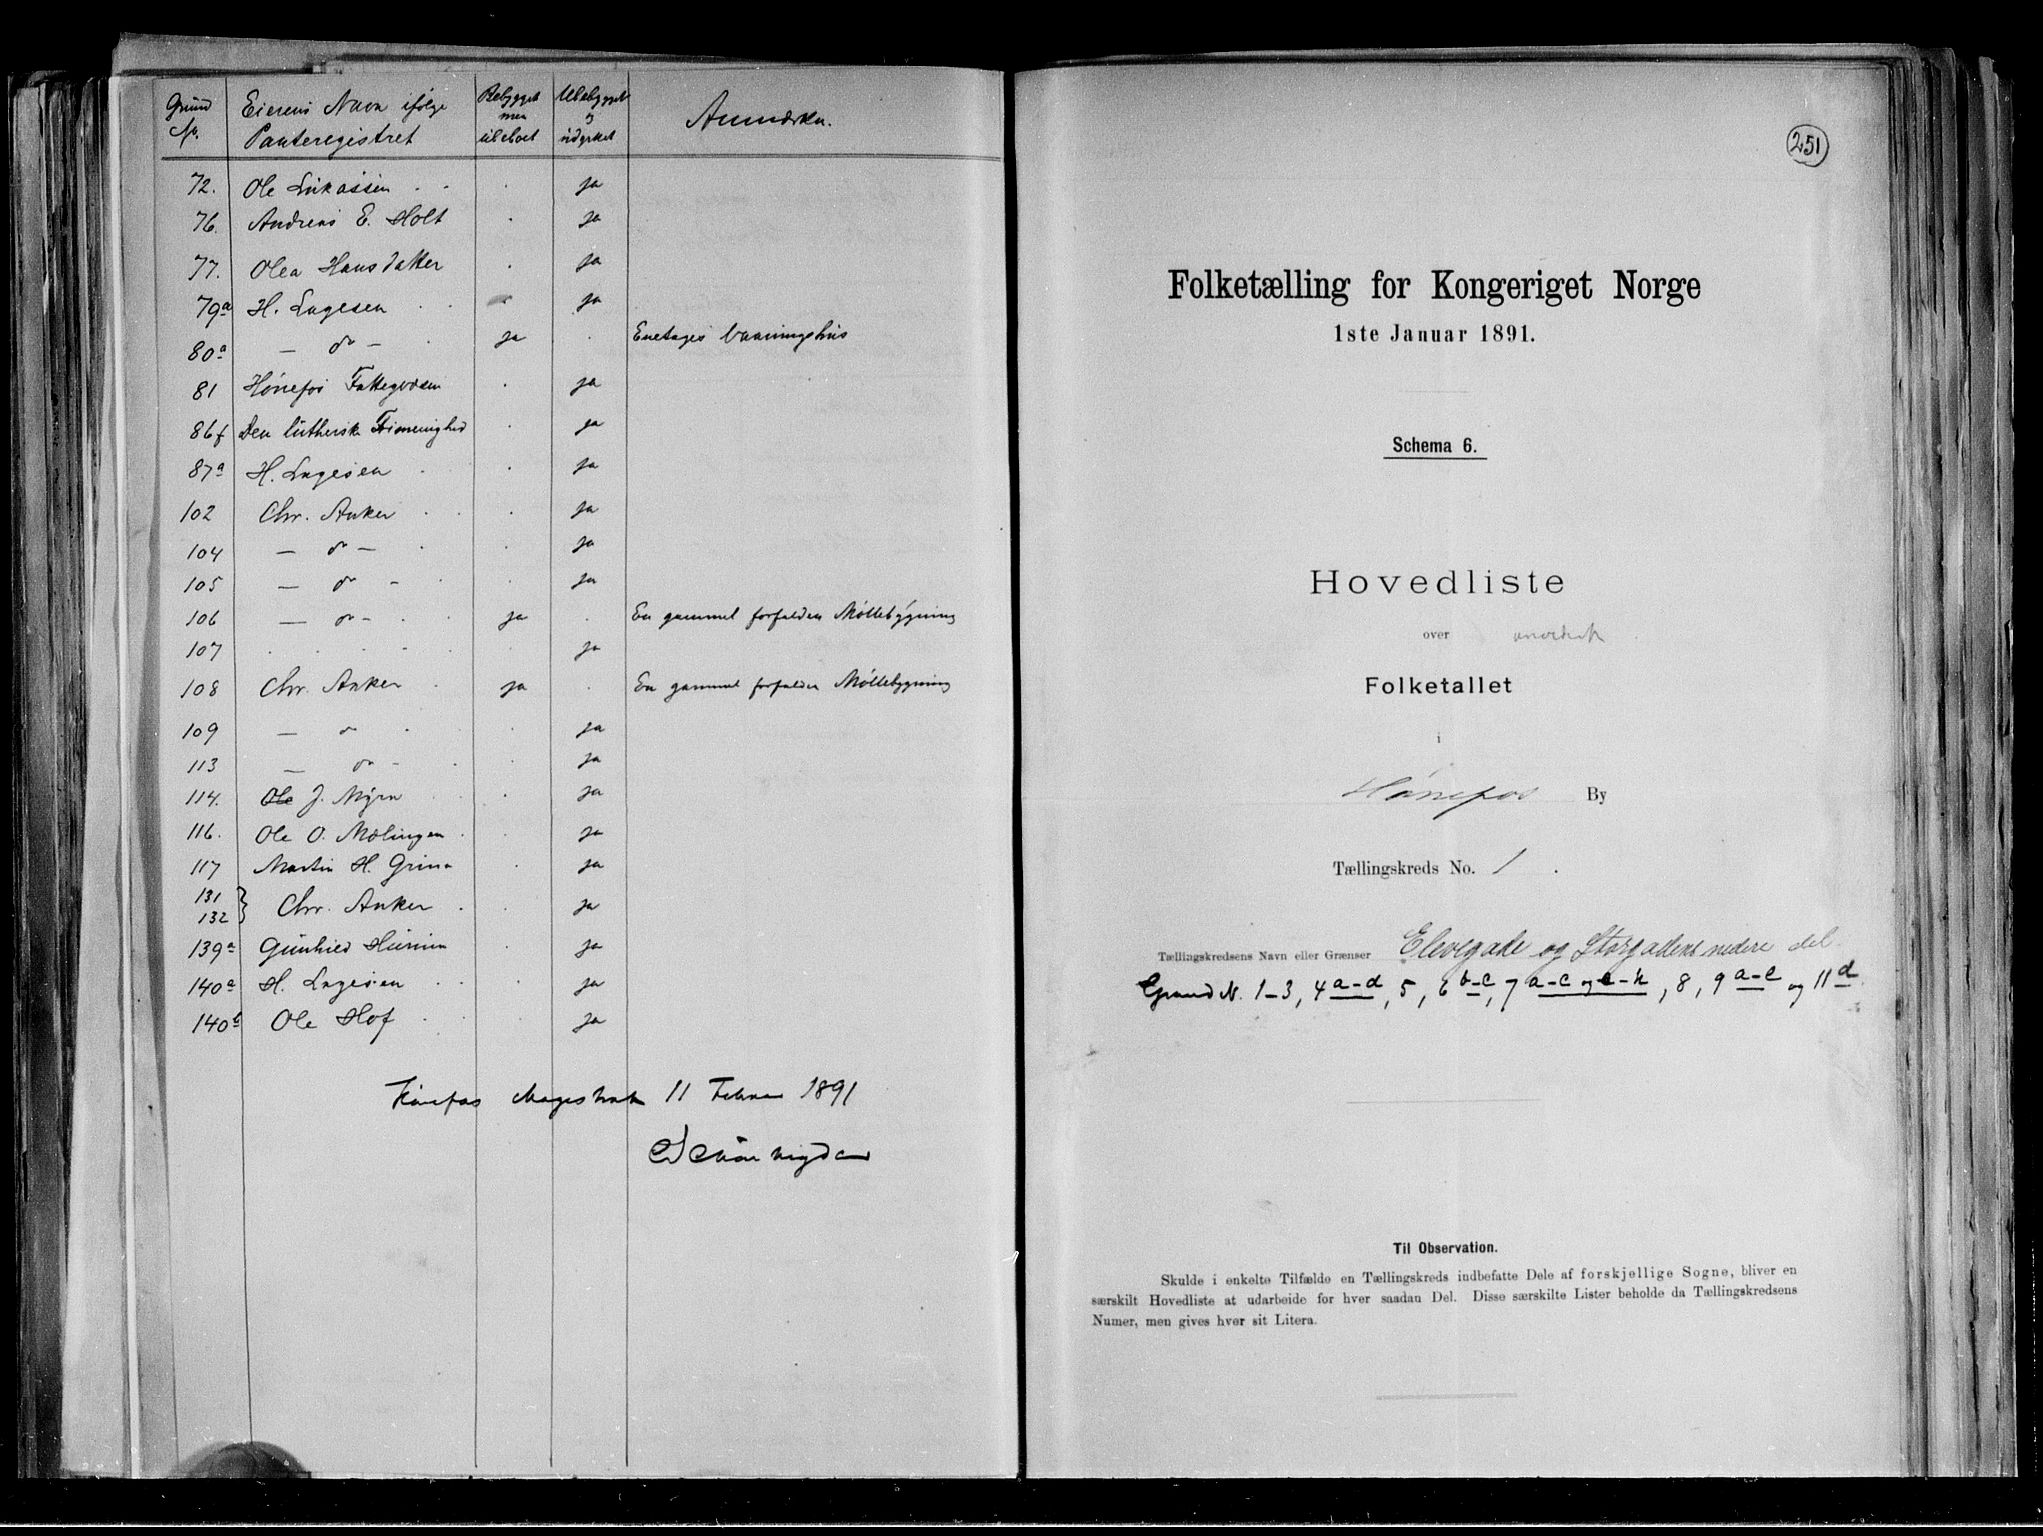 Grund No. Eierens Navn ifølge Panteregistret Bebygget men ubeboet Ubebygget og udyrket Anmærkn.
72. Ole Lukassen . . . ja
76. Andreas E. Holt . ja
77. Olea Hansdatter . ja
79a H. Lagesen . . . ja
80a — do — . ja . Enetages Vaaningshus
81 Hønefos Fattigvæsen . ja
86f Den lutherske Frimenighed . ja
87a H. Lagesen . . ja
102 Chr. Anker . . . ja
104 — do — . . ja
105 — do — . . ja
106 — do — . . ja . En gammel forfalden Møllebygning
107 . . . . . . ja
108 Chr. Anker . ja . En gammel forfalden Møllebygning
109 — do . . ja
113 — do — . . ja
114. Ole J. Myra . . ja
116. Ole O. Mælingen . . ja
117 Martin H. Grina . ja
131
132 } Chr. Anker . . ja
139a Gunhild Hurum . ja
140a H. Lagesen . . . ja
140b Ole Hof . . . ja
Hønefos Magistrat 11 Februar 1891
251
Folketælling for Kongeriget Norge
1ste Januar 1891.
Schema 6.
Hovedliste
over
Folketallet
i
Hønefos By
Tællingskreds No. 1.
Tællingskredsens Navn eller Grænser Elvegade og Storgadens nedre del.
Grund N. 1-3, 4 a-d, 5, 6 b-c, 7 a-c og e-k, 8, 9 a-e og 11 d.
Til Observation.
Skulde i enkelte Tilfælde en Tællingskreds indbefatte Dele af forskjellige Sogne, bliver en
særskilt Hovedliste at udarbeide for hver saadan Del. Disse særskilte Lister beholde da Tællingskredsens
Numer, men gives hver sit Litera.